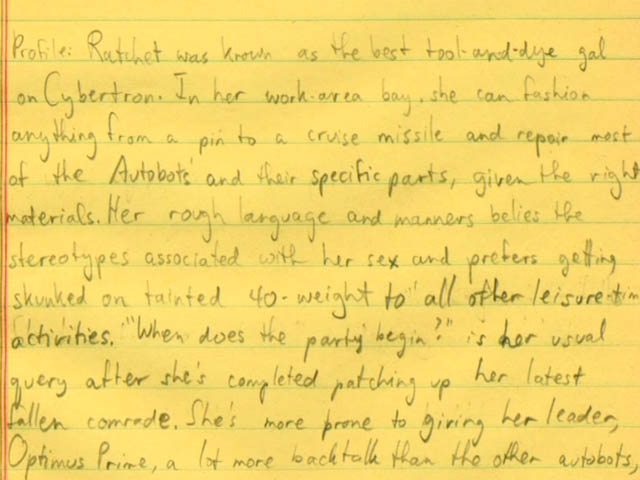 Profile: Ratchet was known as the best tool-and-dye gal
on Cybertron. In her work-area bay, she can fashion
anything from a pin to a cruise missile and repair most
of the Autobots' and their specific parts, given the right
materials. Her rough language and manners belies the
stereotypes associated with her sex and prefers getting
skunked on tainted 40-weight to "all other leisure-tim
activities." "When does the party begin?" is her usual
query after she's completed patching up her latest
fallen comrade. She's more prone to giving her leader,
Optimus Prime, a lot more backtalk than the other autobots,